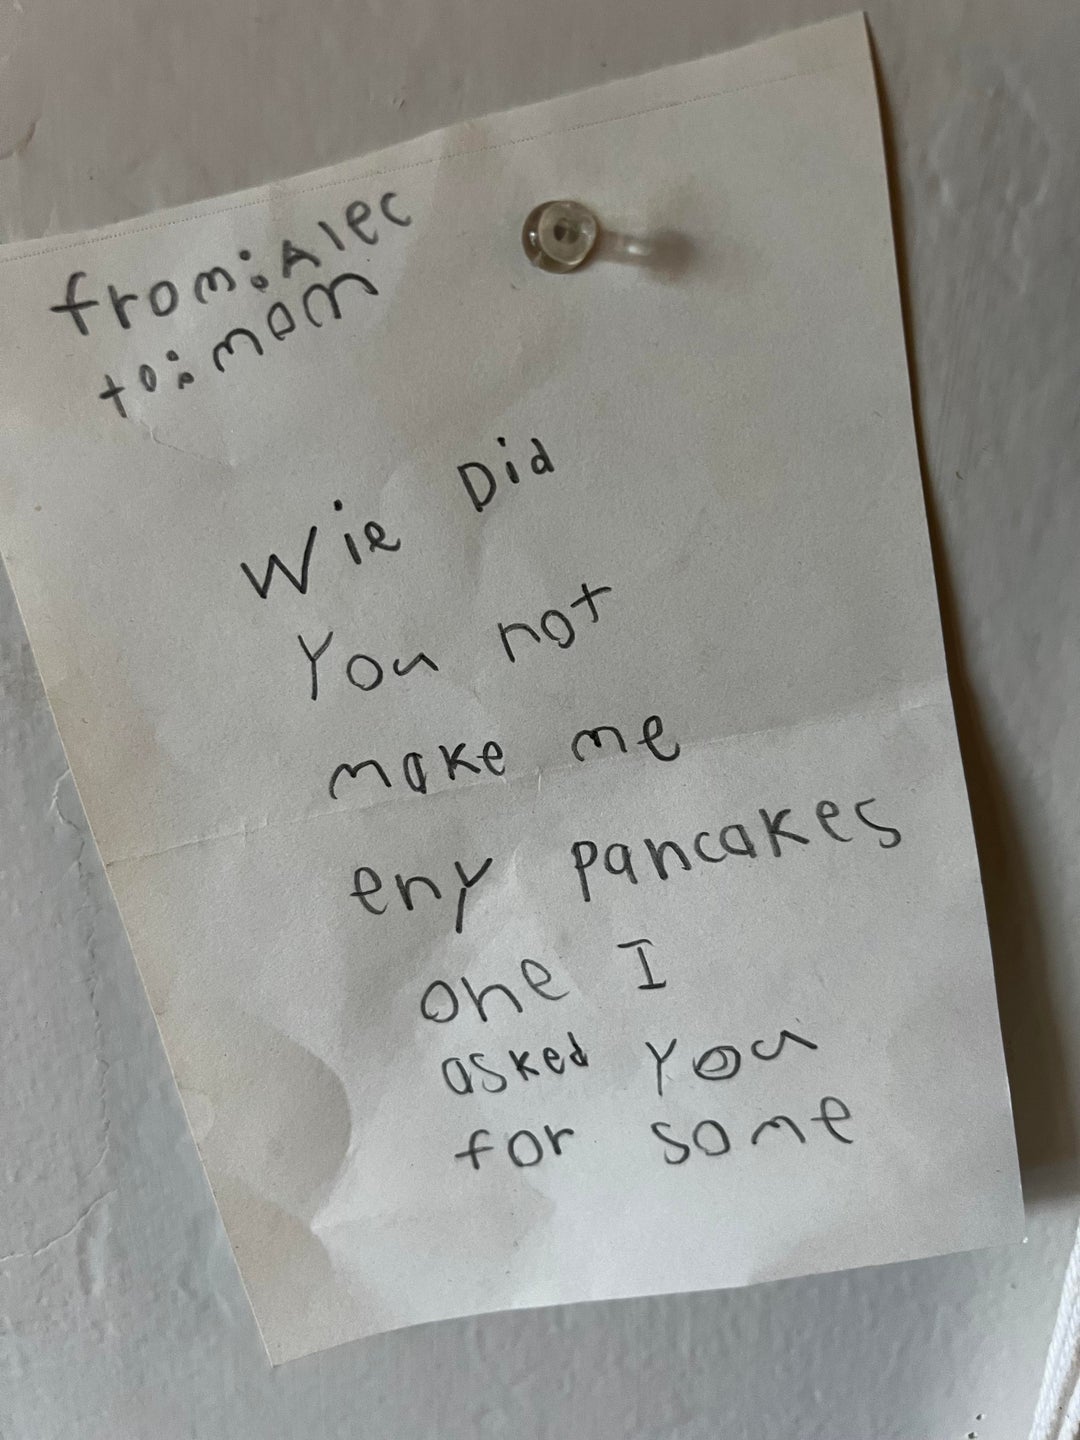 from: Alec
to: mom
Wie Did
You not
make me
eny pancakes
one I
asked you
for some